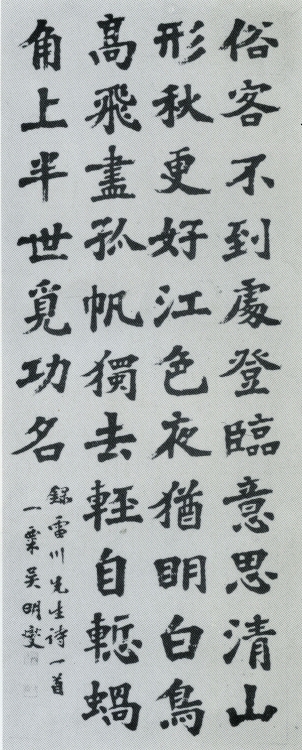 俗客不到處登臨意思清山
形秋更好江色夜猶明白鳥
高飛盡孤帆獨去輕自慙蝸
角上半世覓功名
錄雷川先生詩一首
一粟吳明燮